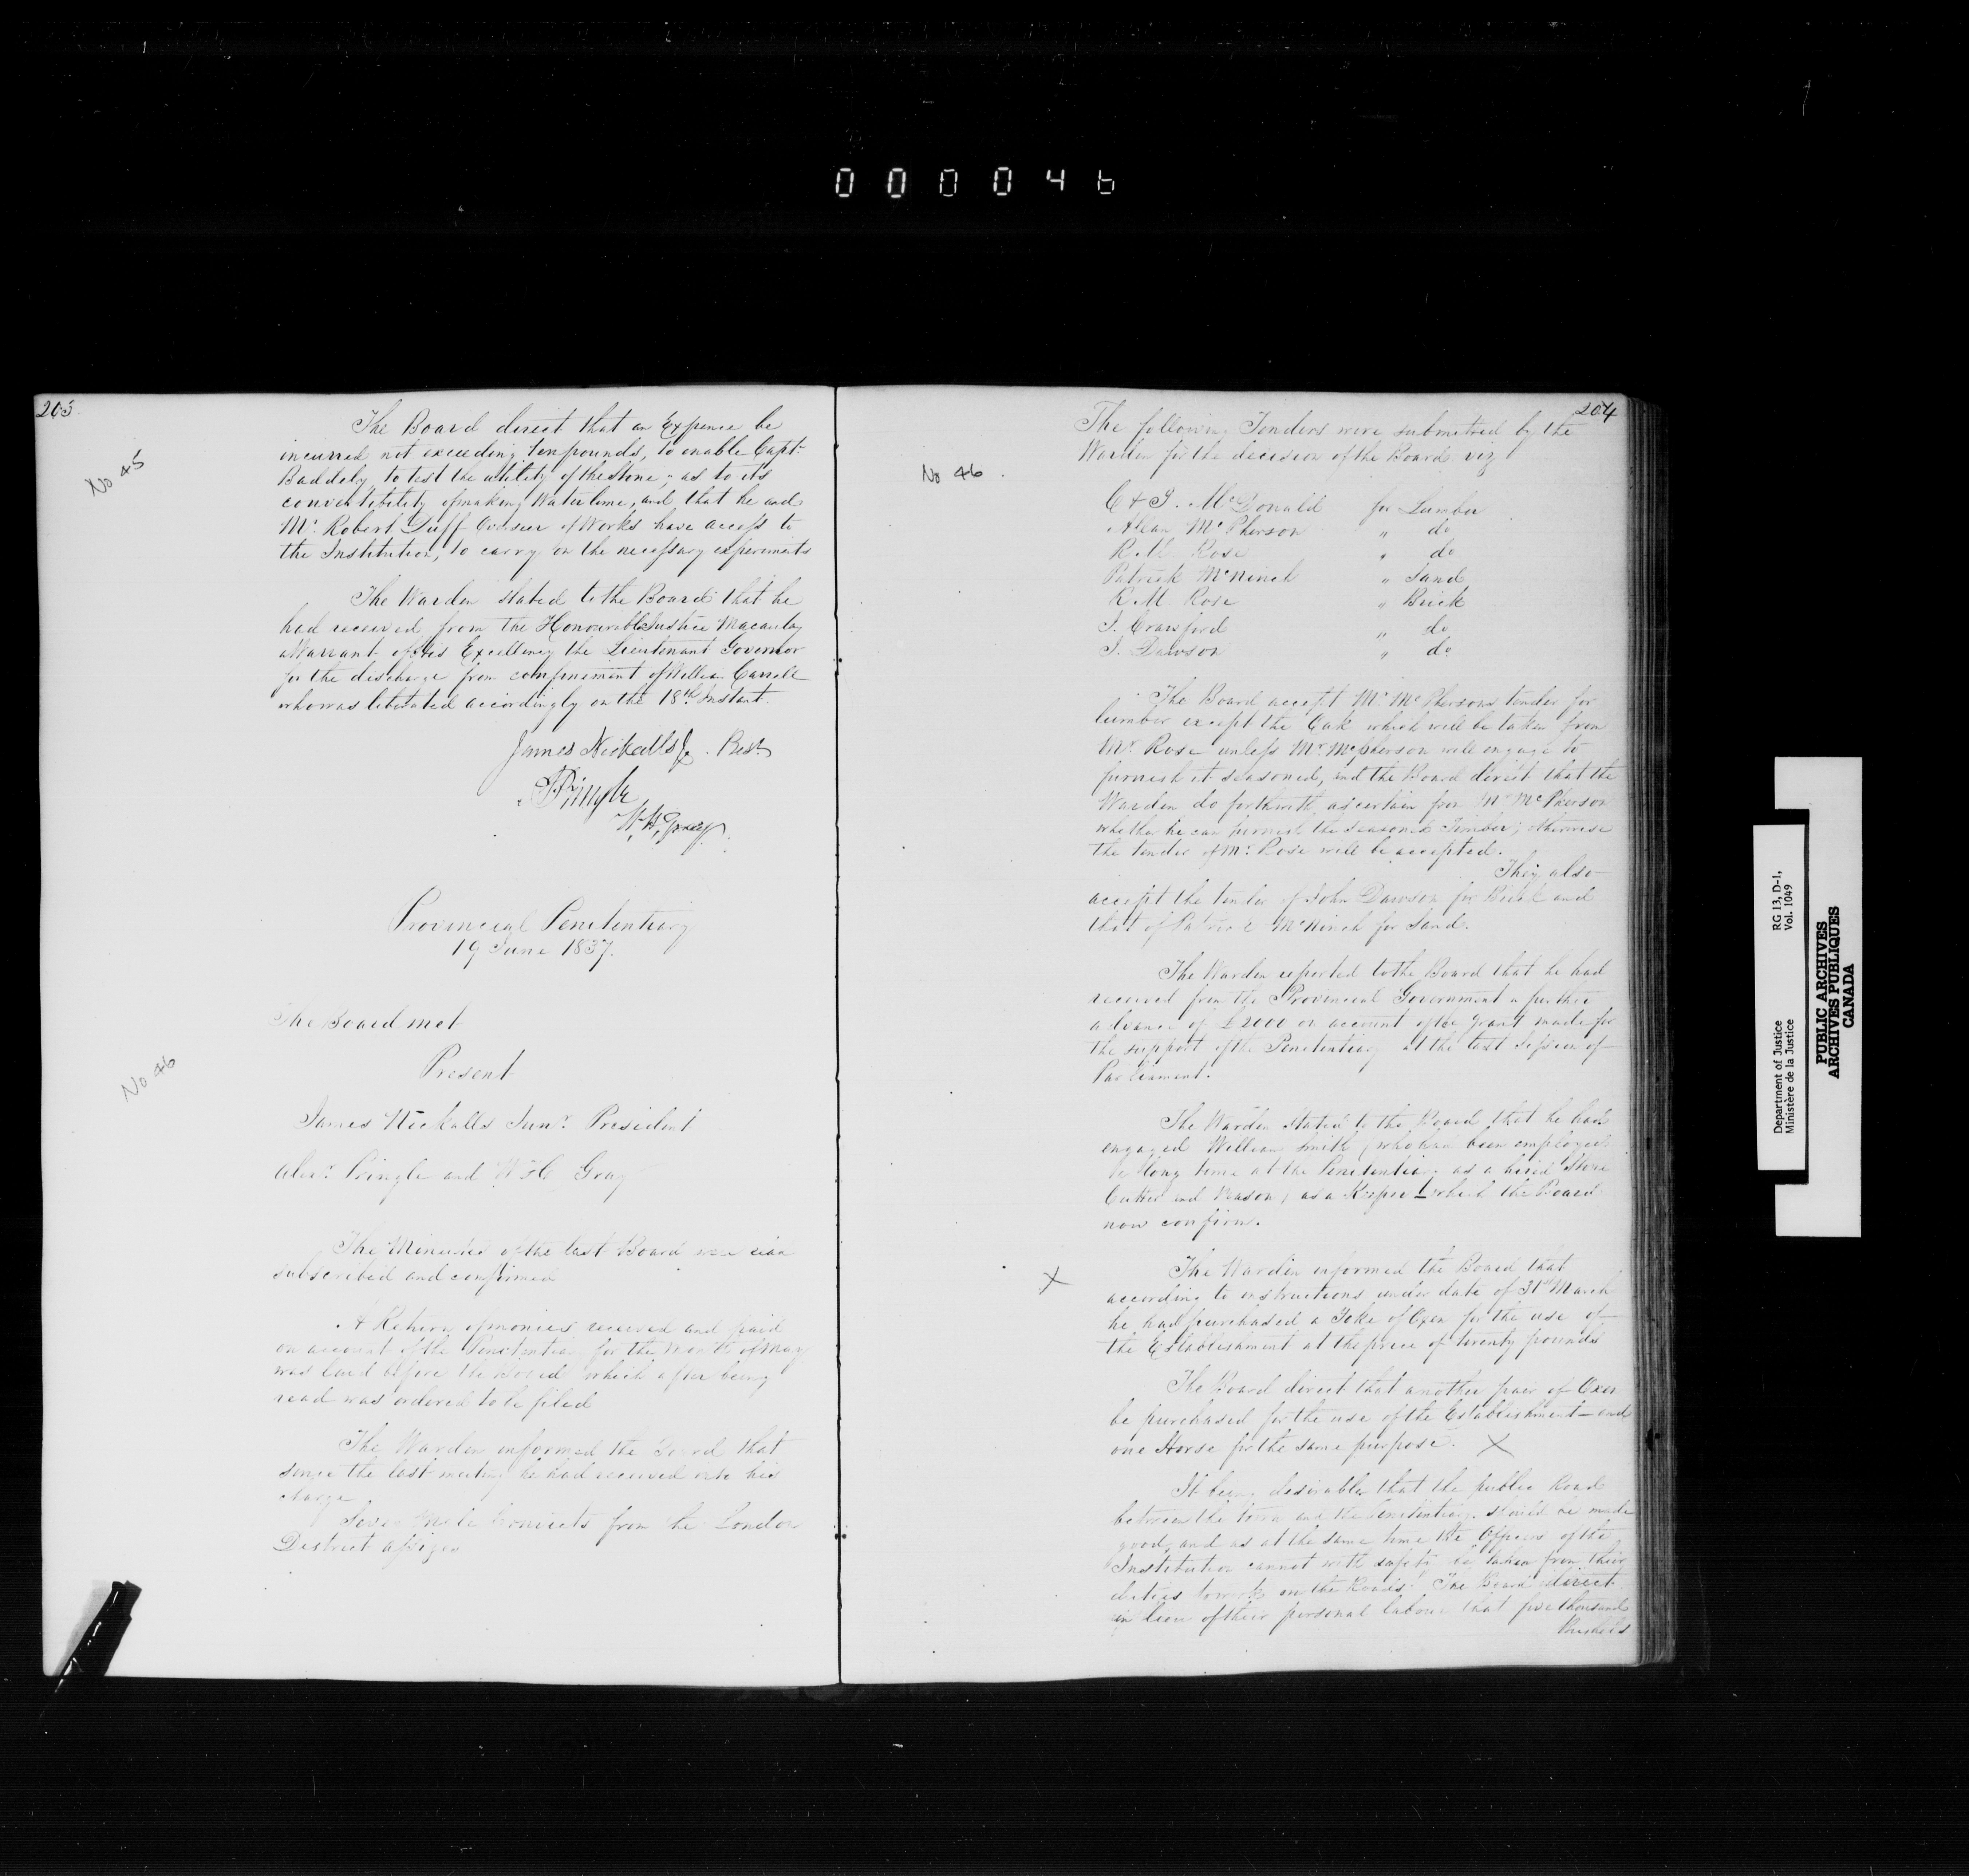 000046
203
No 45
The Board direct that an Expence be
incurred not exceeding ten pounds, to enable Capt.
Baddely to test the utility of the Stone, as to its
convertibility of making Water lime, and that he and
Mr. Robert Duff Overseer of Works have access to
the Institution, to carry on the necessary experiments
The Warden stated to the Board that he
had received from the Honourable Justice Macaulay
a Warrant of His Excellency the Lieutenant Governor
for the discharge from confinement of William Carroll
who was liberated accordingly on the 18th Instant.
James Nickalls Jr. Prest
A Pringle
W. H. Gray
Provincial Penitentiary
19 June 1837.
The Board met
Present
No 46
James Nickalls Junr. President
Alexr. Pringle and W H Gray
The Minutes of the last Board were read
subscribed and confirmed
A Return of monies received and paid
on account of the Penitentiary for the Month of May
was laid before the Board which after being
read was ordered to be filed
The Warden informed the Board that
since the last meeting he had received into his
charge
Seven Male Convicts from the London
District Assizes
204
No 46.
The following Tenders were submitted by the
Warden for the decision of the Board viz
C & J. McDonald for Lumber
Allan McPherson " do
R. M. Rose " do
Patrick McNinch " Sand
R. M. Rose " Brick
J. Crawford " do
J. Dawson " do
The Board accept Mr. McPhersons tender for
lumber except the Oak which will be taken from
Mr. Rose unless Mr. McPherson will engage to
furnish it seasoned, and the Board direct that the
Warden do forthwith ascertain from Mr McPherson
whether he can furnish the seasoned Timber; otherwise
the tender of Mr. Rose will be accepted.
They also
accept the tender of John Dawson for Brick and
that of Patrick McNinch for Sand.
The Warden reported to the Board that he had
received from the Provincial Government a further
advance of £2000 on account of the grant made for
the support of the Penitentiary at the last Session of
Parliament.
The Warden stated to the Board that he had
engaged William Smith (who had been employed
a long time at the Penitentiary as a hired Stone
Cutter and Mason) as a Keeper which the Board
now confirm.
X
The Warden informed the Board that
according to instructions under date of 31st March
he had purchased a Yoke of Oxen for the use of
the Establishment at the price of twenty pounds
The Board direct that another pair of Oxen
be purchased for the use of the Establishment and
one Horse for the same purpose. X
It being desirable that the public Road
between the town and the Penitentiary should be made
good, and as at the same time the Officers of the
Institution cannot with safety be taken from their
duties to work on the Roads. The Board direct
in lieu of their personal labour that five thousand
Bushels
Department of Justice RG 13, D-1,
Ministère de la Justice Vol. 1049
PUBLIC ARCHIVES
ARCHIVES PUBLIQUES
CANADA